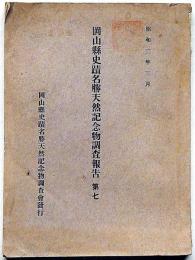 昭和二年三月
岡山縣史蹟名勝天然記念物調査報告 第七
岡山縣史蹟名勝天然記念物調査會發行